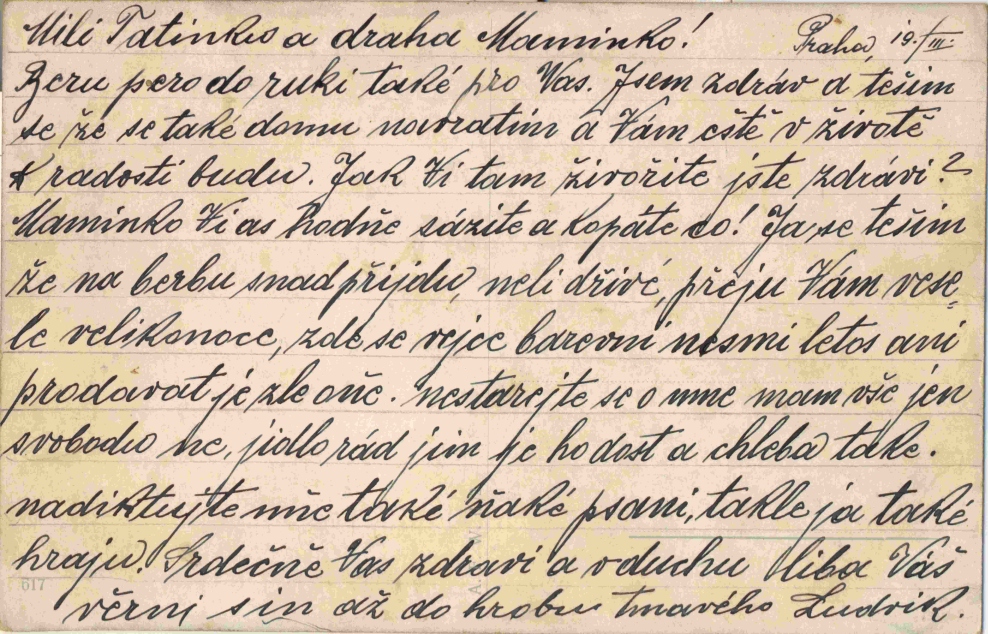 Mili Tatinko a draha Maminko! Praha, 19./III.
Beru pero do ruki také pro Vas. Jsem zdráv a tešim
se že se také domu navratim a Vám eště v životě
k radosti budu. Jak Vi tam živořite jste zdrávi?
Maminko Vi as hodňe sázite a kopáte co! Ja se tešim
že na berbu snad přijdu, neli dřivé, přeju Vám vese„
le velikonoce, zde se vejce barevni nesmi letos ani
prodavat je zle oňe. nestarejte se o mne mam vše jen
svobodu ne, jidlo rád jim je ho dost a chleba take.
nadiktujte mňe také ňaké psani, takle ja také
hraju. Srdečně Vas zdravi a v duchu liba Váš
věrni sin až do hrobu tmavého Ludvik.
617